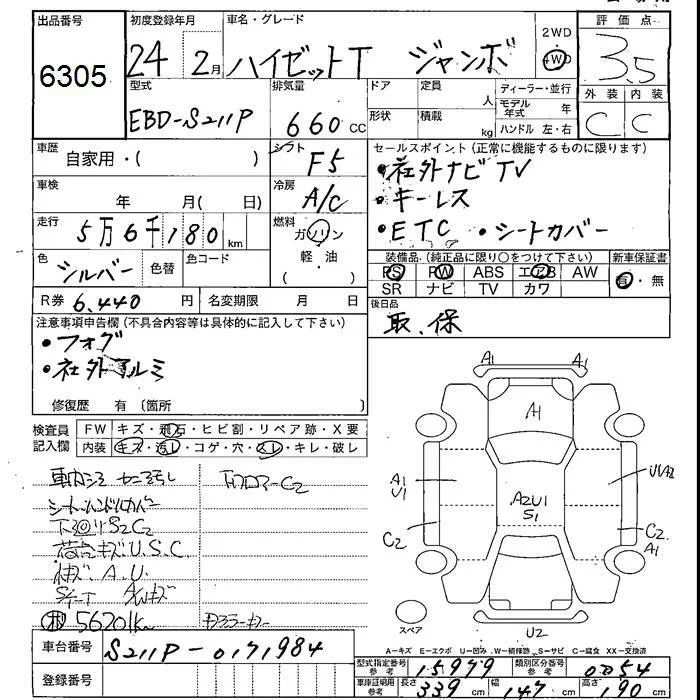 出品番号
6305
初度登録年月
24 2月
車名・グレード
ハイゼットT ジャンボ
2WD
4WD
評価点
3.5
型式
EBD-S211P
排気量
660cc
ドア
定員
人
形状
積載
kg
ディーラー・並行
モデル年式 年
ハンドル 左・右
外装 内装
C C
車歴
自家用・( )
シフト
F5
車検
年 月( 日)
冷房
A/C
走行
5万6千180km
燃料
ガソリン
軽・油
( )
色
シルバー
色替
色コード
R券 6,440円
名変期限 月 日
セールスポイント(正常に機能するものに限ります)
・社外ナビTV
・キーレス
・ETC ・シートカバー
装備品(純正品に限り○をつけて下さい)
新車保証書
PS PW ABS エアB AW
SR ナビ TV カワ
有・無
後日品
取.保
注意事項申告欄(不具合内容等は具体的に記入して下さい)
・フォグ
・社外アルミ
修復歴 有 (箇所 )
検査員記入欄
FW キズ・飛石・ヒビ割・リペア跡・X要
内装 キズ・汚レ・コゲ・穴・スレ・キレ・破レ
シートハンドルカバー
下回りS2C2
荷台キズ.U.S.C.
A.U.
56201km
車台番号
S211P-0171984
登録番号
A1 A1
A1
A1
U1
A2U1
S1
U1A2
C2
C2
A1
スペア
U2
A−キズ E−エクボ U−凹み W−補修跡 S−サビ C−腐食 XX−交換済
型式指定番号 参考 15979
類別区分番号 参考 0054
車庫証明用 参考
長さ 339cm 幅 147cm 高さ 190cm